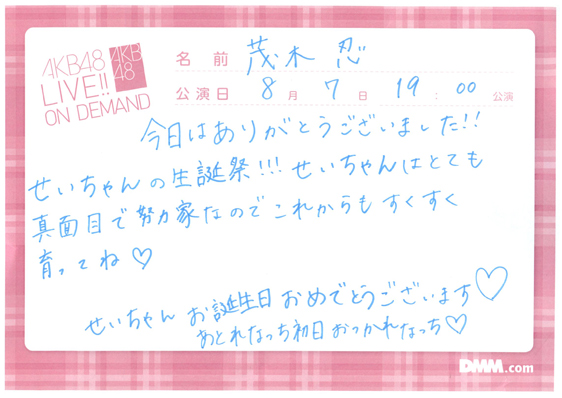 AKB48
LIVE!!
ON DEMAND
AKB
48
名前 茂木 忍
公演日 8月7日 19:00公演
今日はありがとうございました!!
せいちゃんの生誕祭!!! せいちゃんはとても
真面目で努力家なのでこれからもすくすく
育ってね♡
せいちゃん お誕生日おめでとうございます♡
あとれなっち初日おつかれなっち♡
DMM.com